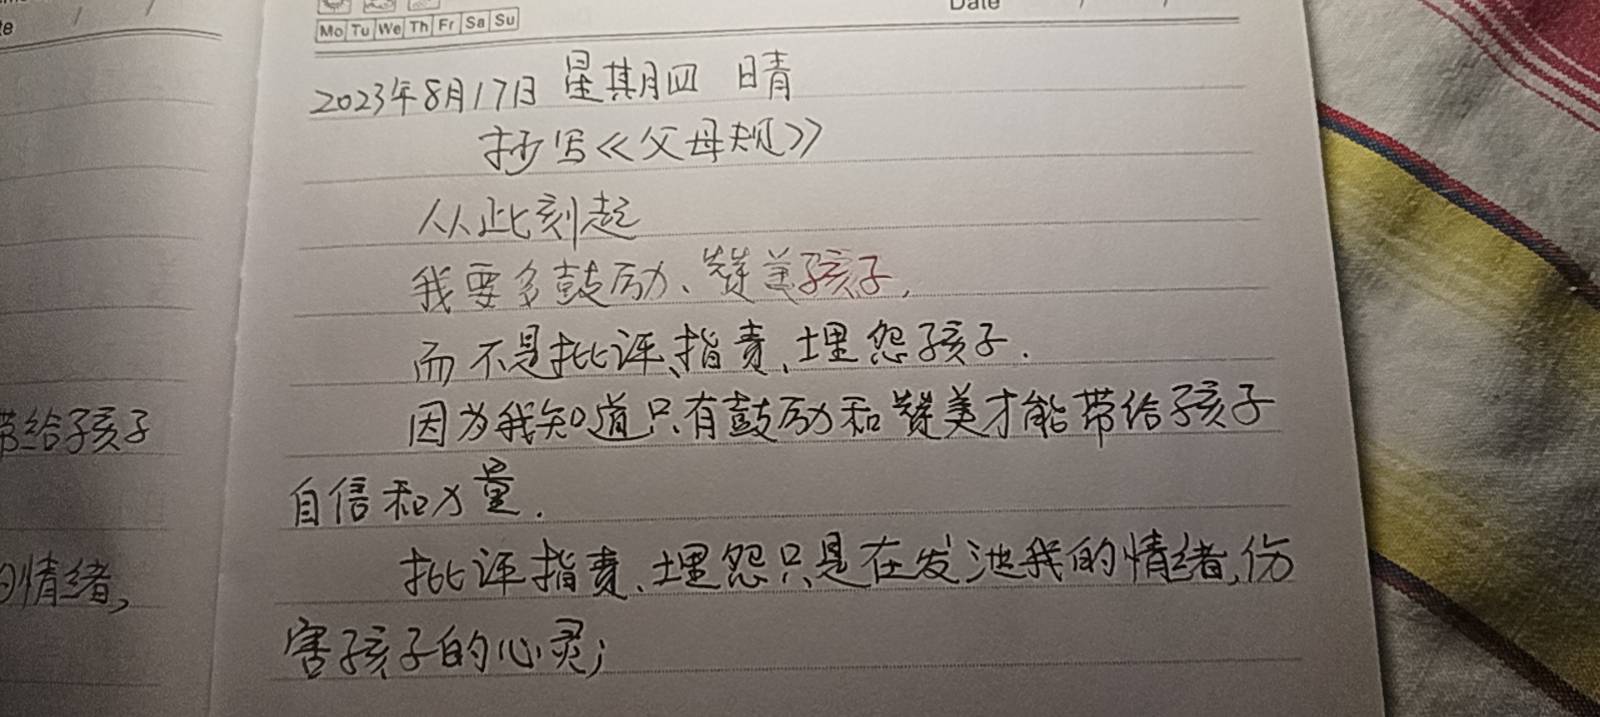 te / /
Date / /
Mo Tu We Th Fr Sa Su
2023年8月17日 星其月四 晴
抄写《父母规》
从此刻起
我要多鼓励、赞美孩子,
而不是批评、指责、埋怨孩子.
因为我知道只有鼓励和赞美才能带给孩子
自信和力量.
批评指责、埋怨只是在发池我的情绪,伤
害孩子的心灵;
带给孩子
的情绪,